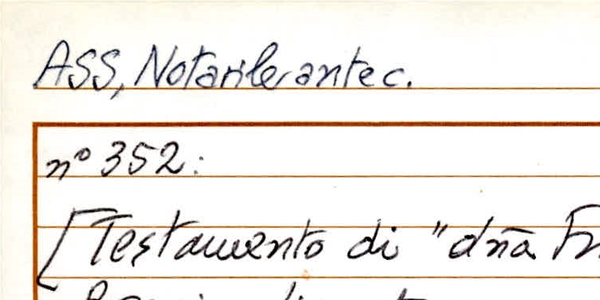 ASS, Notarile antec.
n° 352:
[Testamento di "dña